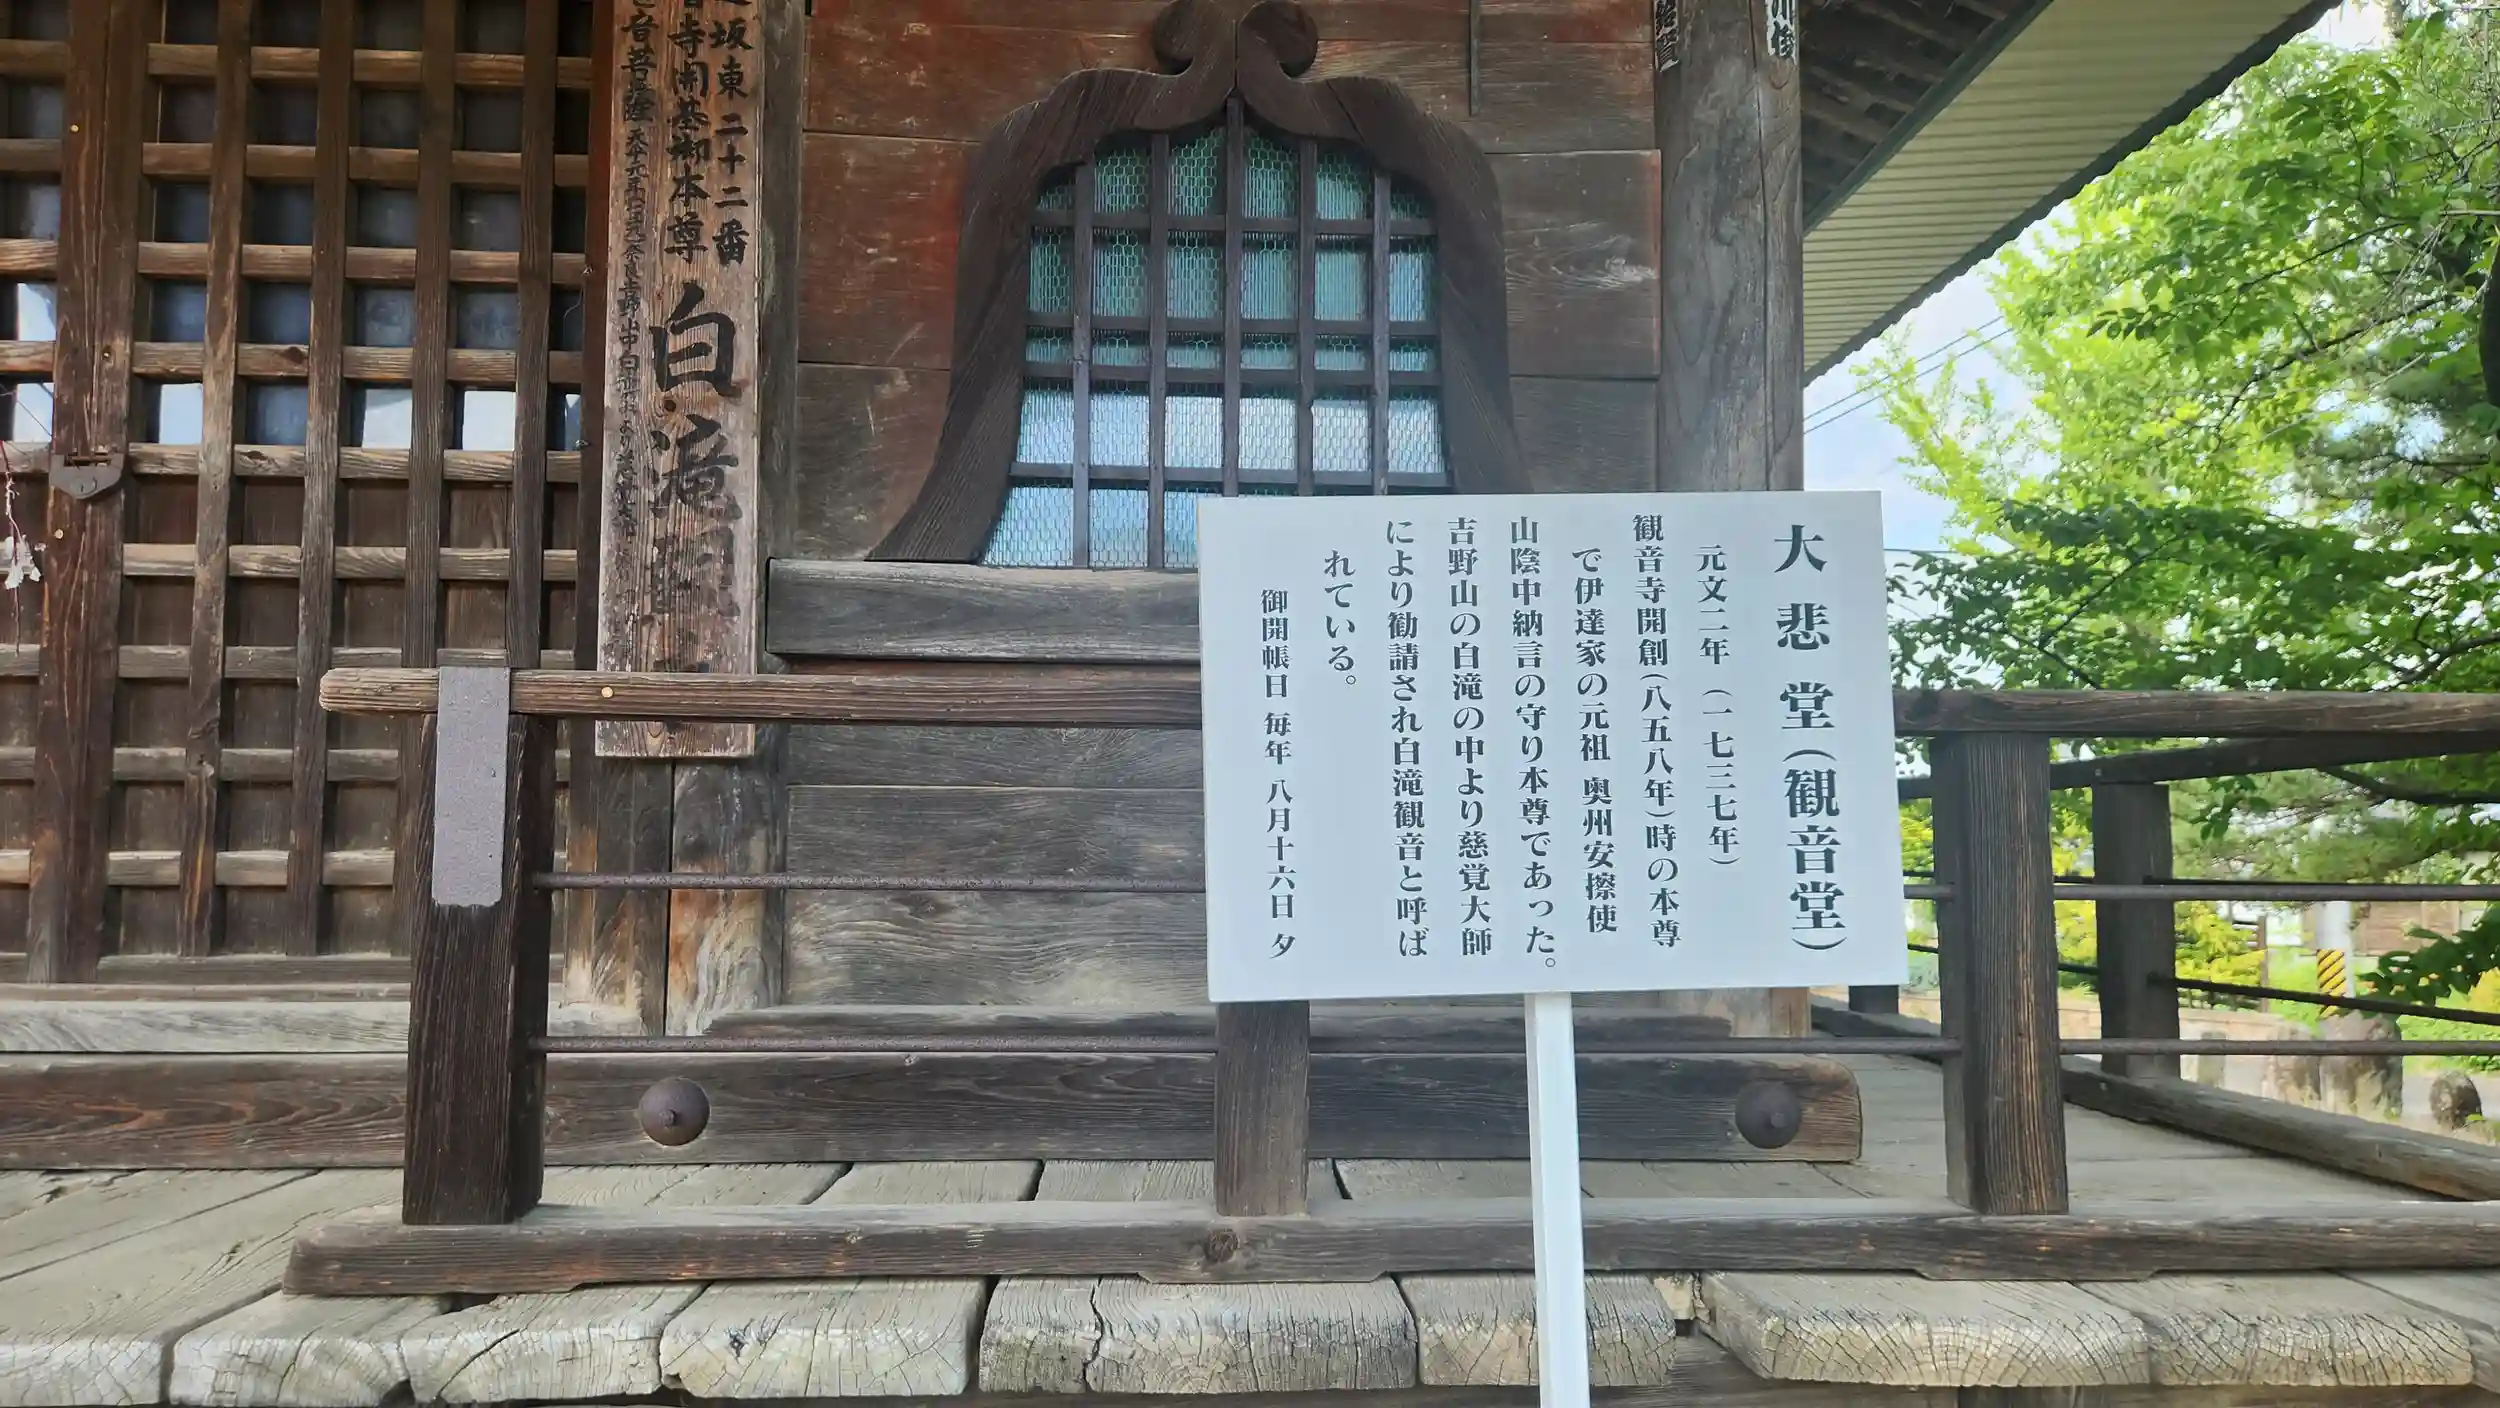 大悲堂(観音堂)
元文二年(一七三七年)
観音寺開創(八五八年)時の本尊
で伊達家の元祖 奥州安擦使
山陰中納言の守り本尊であった。
吉野山の白滝の中より慈覚大師
により勧請され白滝観音と呼ば
れている。
御開帳日 毎年 八月十六日 夕
坂東 二十二番
音寺開基御本尊 白滝観
音菩薩